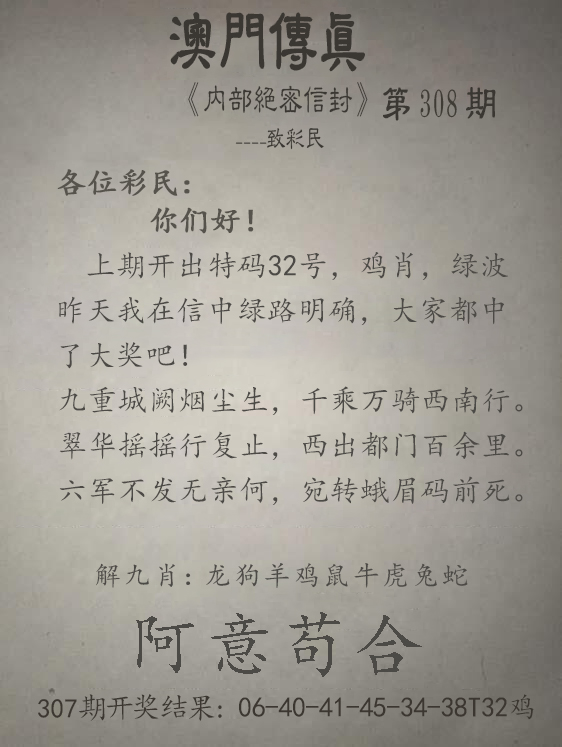 澳門傳眞
《内部絕密信封》第308期
----致彩民
各位彩民：
你们好！
上期开出特码32号，鸡肖，绿波
昨天我在信中绿路明确，大家都中
了大奖吧！
九重城阙烟尘生，千乘万骑西南行。
翠华摇摇行复止，西出都门百余里。
六军不发无亲何，宛转蛾眉码前死。
解九肖：龙狗羊鸡鼠牛虎兔蛇
阿意苟合
307期开奖结果：06-40-41-45-34-38T32鸡